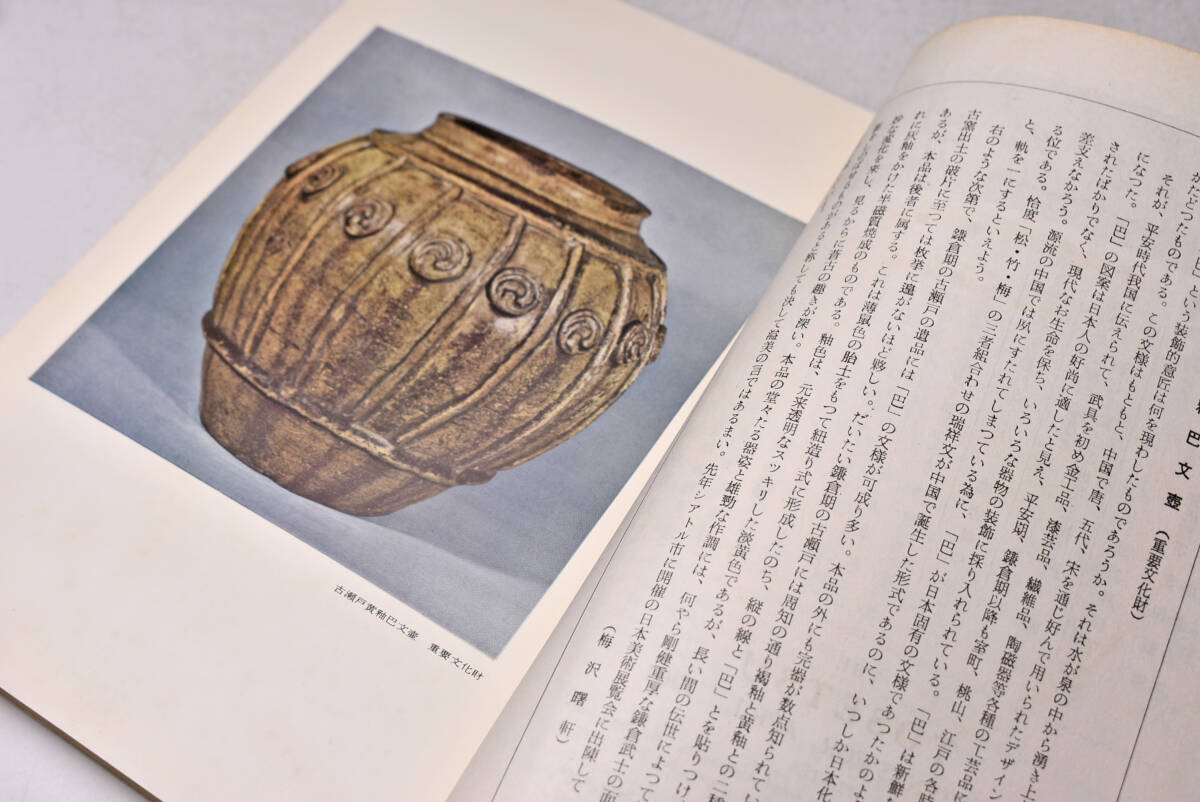 巴文壺(重要文化財)
「巴」という装飾的意匠は何を現わしたものであろうか。それは水が泉の中から湧き上
がたどつたものである。この文様はもともと、中国で唐、五代、宋を通じ好んで用いられたデザイン
それが、平安時代我国に伝えられて、武具を初め金工品、漆芸品、繊維品、陶磁器等各種の工芸品に
になつた。「巴」の図案は日本人の好尚に適したと見え、平安期、鎌倉期以降も室町、桃山、江戸の各時
されたばかりでなく、現代なお生命を保ち、いろいろな器物の装飾に採り入れられている。「巴」は新鮮な
差支えなかろう。源流の中国では夙にすたれてしまつている為に、「巴」が日本固有の文様であつたかのよ
る位である。恰度「松・竹・梅」の三者組合わせの瑞祥文が中国で誕生した形式であるのに、いつしか日本化
と、軌を一にするといえよう。
右のような次第で、鎌倉期の古瀬戸の遺品には「巴」の文様が可成り多い。本品の外にも完器が数点知られてい
古窯出土の破片に至つては枚挙に遑がないほど夥しい。だいたい鎌倉期の古瀬戸には周知の通り褐釉と黄釉との二種
あるが、本品は後者に属する。これは薄鼠色の胎土をもつて紐造り式に形成したのち、縦の線と「巴」とを貼りつけ
れに灰釉をかけた半磁質焼成のものである。釉色は、元来透明なスッキリした淡黄色であるが、長い間の伝世によつて
妙な風化を来し、見るからに蒼古の趣きが深い。本品の堂々たる器姿と雄勁な作調には、何やら剛健重厚な鎌倉武士の面
ものがあると称しても決して溢美の言ではあるまい。先年シアトル市に開催の日本美術展覧会に出陳して
(梅沢曙軒)
古瀬戸黄釉巴文壺 重要文化財